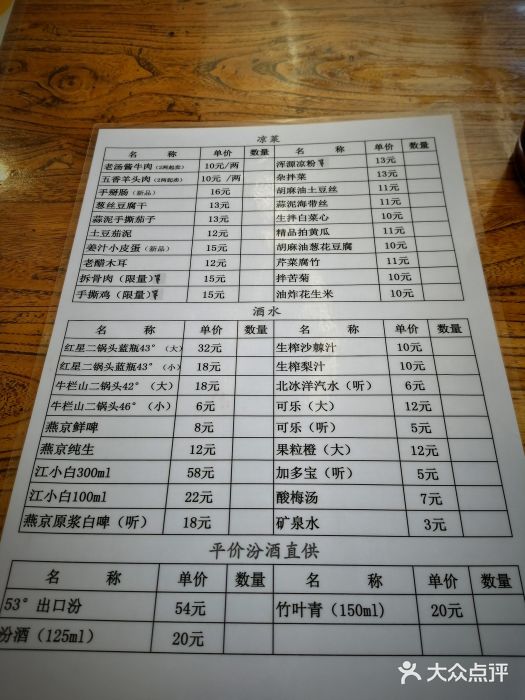 凉菜
名 称 单价 数量 名 称 单价 数量
老汤酱牛肉（2两起卖） 10元/两 浑源凉粉 13元
五香羊头肉（2两起卖） 10元/两 杂拌菜 13元
手掰肠（新品） 16元 胡麻油土豆丝 11元
葱丝豆腐干 13元 蒜泥海带丝 11元
蒜泥手撕茄子 13元 生拌白菜心 10元
土豆茄泥 12元 精品拍黄瓜 11元
姜汁小皮蛋（新品） 15元 胡麻油葱花豆腐 10元
老醋木耳 12元 芹菜腐竹 11元
拆骨肉（限量） 15元 拌苦菊 10元
手撕鸡（限量） 15元 油炸花生米 10元
酒水
名 称 单价 数量 名 称 单价 数量
红星二锅头蓝瓶43°（大） 32元 生榨沙棘汁 10元
红星二锅头蓝瓶43°（小） 18元 生榨梨汁 10元
牛栏山二锅头42°（大） 18元 北冰洋汽水（听） 6元
牛栏山二锅头46°（小） 6元 可乐（大） 12元
燕京鲜啤 8元 可乐（听） 5元
燕京纯生 12元 果粒橙（大） 12元
江小白300ml 58元 加多宝（听） 5元
江小白100ml 22元 酸梅汤 7元
燕京原浆白啤（听） 18元 矿泉水 3元
平价汾酒直供
名 称 单价 数量 名 称 单价 数量
53°出口汾 54元 竹叶青（150ml） 20元
汾酒（125ml） 20元
大众点评